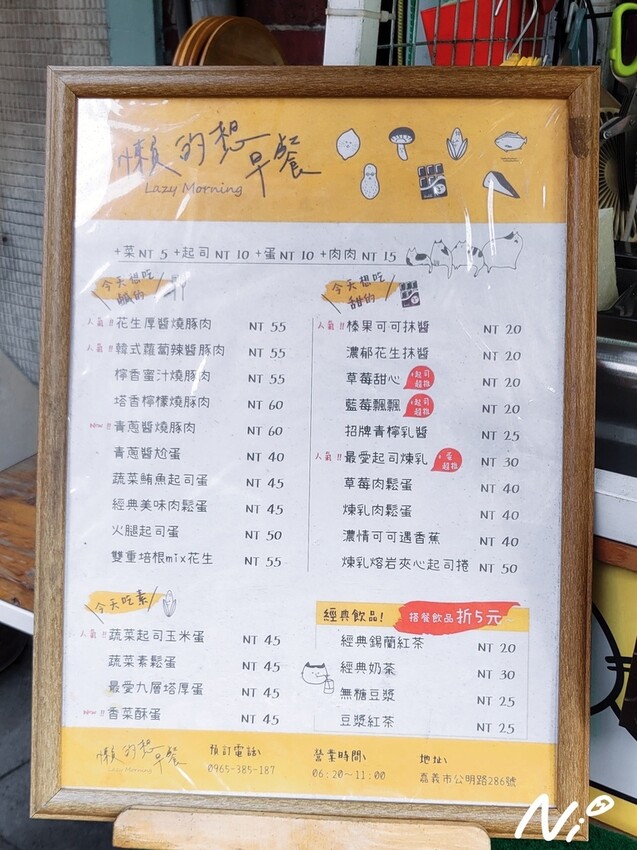 懶的想
早餐
Lazy Morning
+菜 NT 5 +起司 NT 10 +蛋 NT 10 +肉肉 NT 15
今天想吃
鹹的
人氣!! 花生厚醬燒豚肉 NT 55
人氣!! 韓式蘿蔔辣醬豚肉 NT 55
檸香蜜汁燒豚肉 NT 55
塔香檸檬燒豚肉 NT 60
New!! 青蔥醬燒豚肉 NT 60
青蔥醬尬蛋 NT 40
蔬菜鮪魚起司蛋 NT 45
經典美味肉鬆蛋 NT 45
火腿起司蛋 NT 50
雙重培根mix花生 NT 55
今天想吃
甜的
人氣!! 榛果可可抹醬 NT 20
濃郁花生抹醬 NT 20
草莓甜心 +起司超搭 NT 20
藍莓飄飄 +起司超搭 NT 20
招牌青檸乳醬 NT 25
人氣!! 最愛起司煉乳 +蛋超搭 NT 30
草莓肉鬆蛋 NT 40
煉乳肉鬆蛋 NT 40
濃情可可遇香蕉 NT 40
煉乳熔岩夾心起司捲 NT 50
今天吃素
人氣!! 蔬菜起司玉米蛋 NT 45
蔬菜素鬆蛋 NT 45
最愛九層塔厚蛋 NT 45
New!! 香菜酥蛋 NT 45
經典飲品! 搭餐飲品折5元~
經典錫蘭紅茶 NT 20
經典奶茶 NT 30
無糖豆漿 NT 25
豆漿紅茶 NT 25
懶的想
早餐
Lazy Morning
預訂電話\
0965-385-187
營業時間\
06:20~11:00
地址\
嘉義市公明路286號
Ni